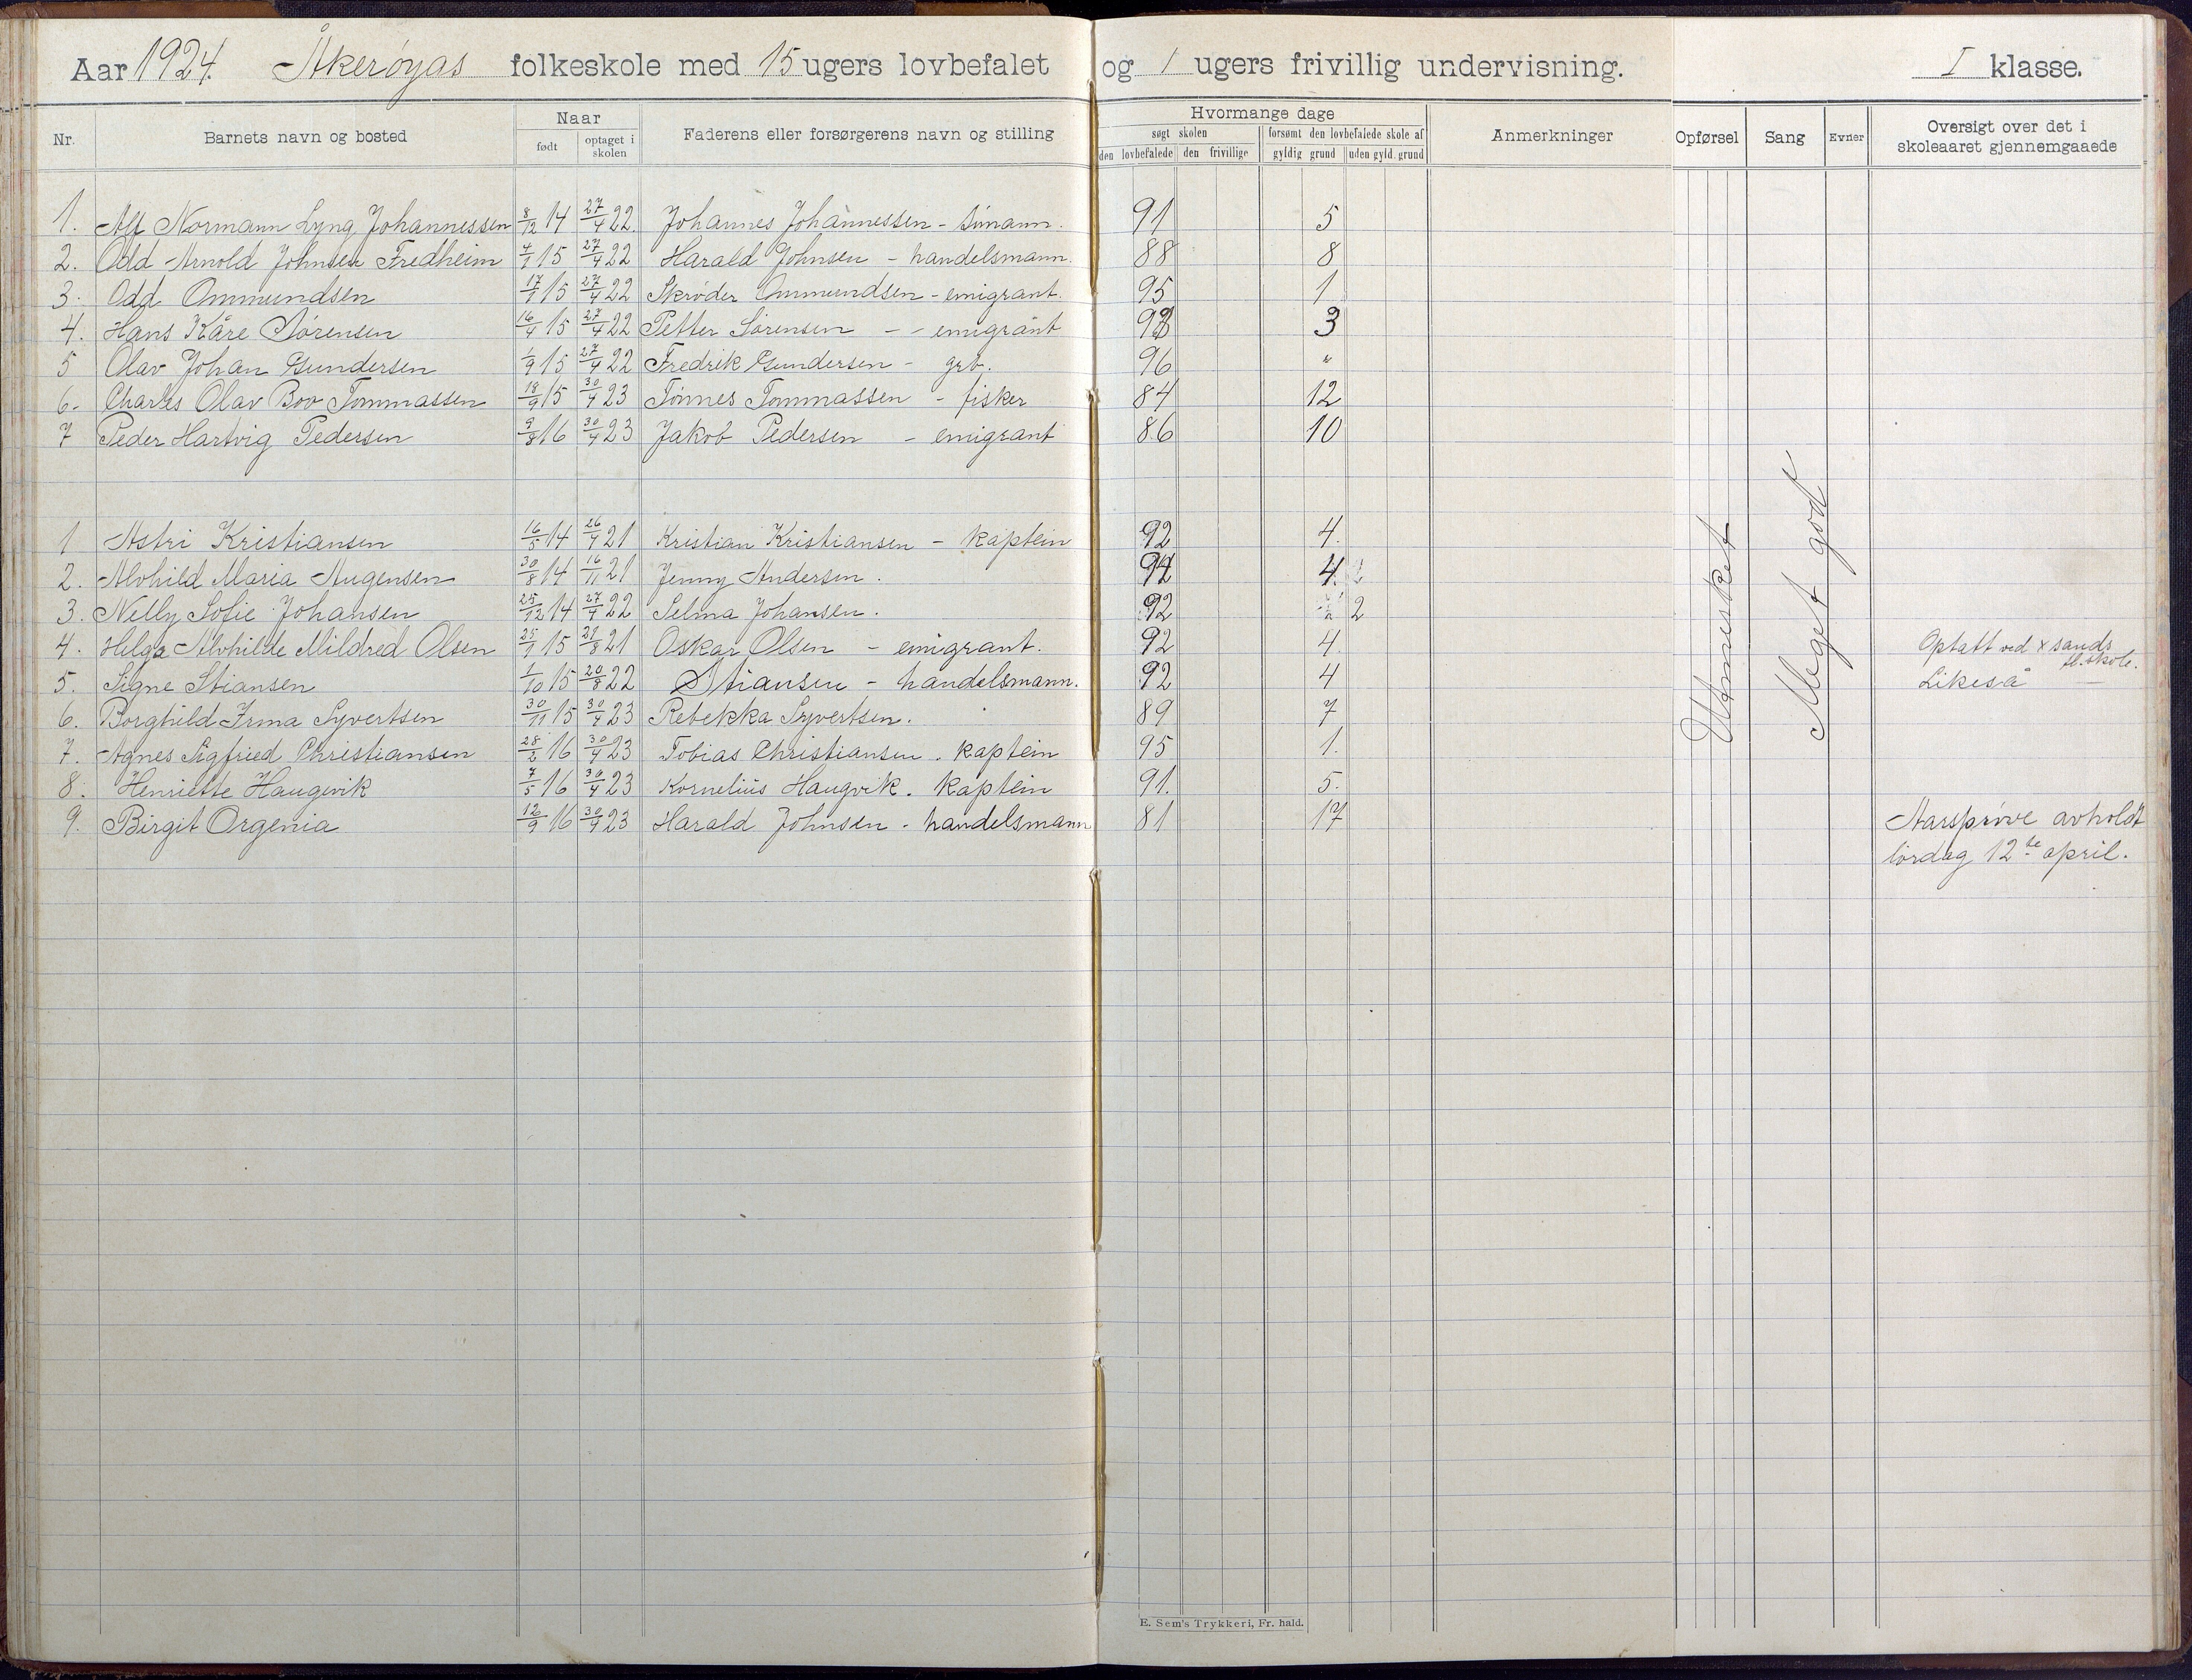 Aar 1924. Åkerøyas folkeskole med 15 ugers lovbefalet og 1 ugers frivillig undervisning. I klasse.
Nr. Barnets navn og bosted Naar født optaget i skolen Faderens eller forsørgerens navn og stilling Hvormange dage søgt skolen den lovbefalede den frivillige forsømt den lovbefalede skole af gyldig grund uden gyld. grund Anmerkninger Opførsel Sang Evner Oversigt over det i skoleaaret gjennemgaaede
1. Alf Normann Lyng Johannessen 8/12 14 27/4 22. Johannes Johannessen - sømann. 91 5
2. Odd Arnold Johnsen Fredheim 4/1 15 27/4 22 Harald Johnsen - handelsmann. 88 8
3. Odd Ommundsen 17/1 15 27/4 22 Skrøder Ommundsen - emigrant. 95 1
4. Hans Kåre Sørensen 16/4 15 27/4 22 Petter Sørensen - - emigrant 93 3
5 Olav Johan Gundersen 1/9 15 27/4 22 Fredrik Gundersen - grb. 96 "
6. Charles Olav Boo Tommassen 18/9 15 30/4 23 Tønnes Tommassen - fisker 84 12
7 Peder Hartvig Pedersen 9/8 16 30/4 23 Jakob Pedersen - emigrant 86 10
1 Astri Kristiansen 16/5 14 26/4 21 Kristian Kristiansen - kaptein 92 4.
2. Alvhild Maria Augensen 30/8 14 16/11 21 Jenny Andersen. 92 4.
3. Nelly Sofie Johansen 25/12 14 27/4 22 Selma Johansen. 92 2 2
4. Helga Alvhilde Mildred Olsen 25/1 15 21/8 21 Oskar Olsen - emigrant. 92 4. Optatt ved x sands fl. skole.
5. Signe Stiansen 1/10 15 20/8 22 Stiansen - handelsmann. 92 4 Likeså
6. Borghild Irma Syvertsen 30/11 15 30/4 23 Rebekka Syvertsen. 89 7
7. Agnes Sigfried Christiansen 28/2 16 30/4 23 Tobias Christiansen. kaptein 95 1.
8. Henriette Haugvik 7/5 16 30/4 23 Kornelius Haugvik. kaptein 91. 5.
9. Birgit Orgenia 12/9 16 30/4 23 Harald Johnsen - handelsmann 81 17
Utmerket
Meget god
Aarsprøve avholdt
lørdag 12te april.
E. Sem's Trykkeri, Fr. hald.